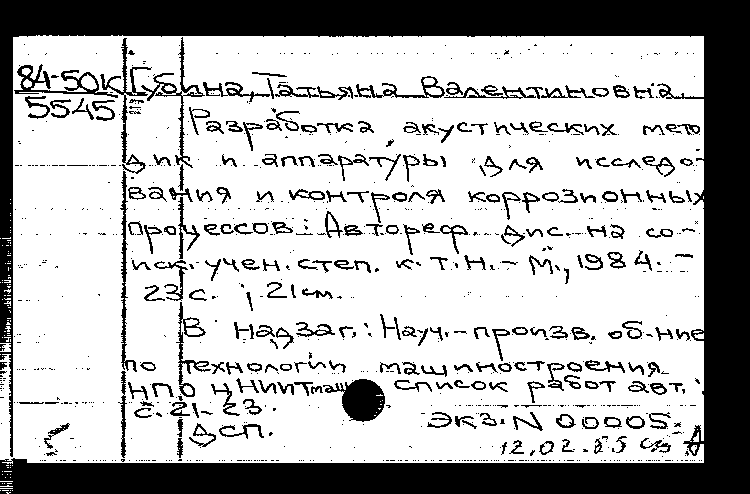 84-50к Губина, Татьяна Валентиновна.
5545
Разработка акустических мето
дик и аппаратуры для исследо-
вания и контроля коррозионных
процессов: Автореф. дис. на со-
иск. учен. степ. к.т.н. - М., 1984. -
23с. ; 21см.
В надзаг.: Науч.-произв. об-ние
по технологии машиностроения
НПО ЦНИИТмаш Список работ авт.:
с. 21-23.
ДСП. Экз. N 00005.
12.02.85